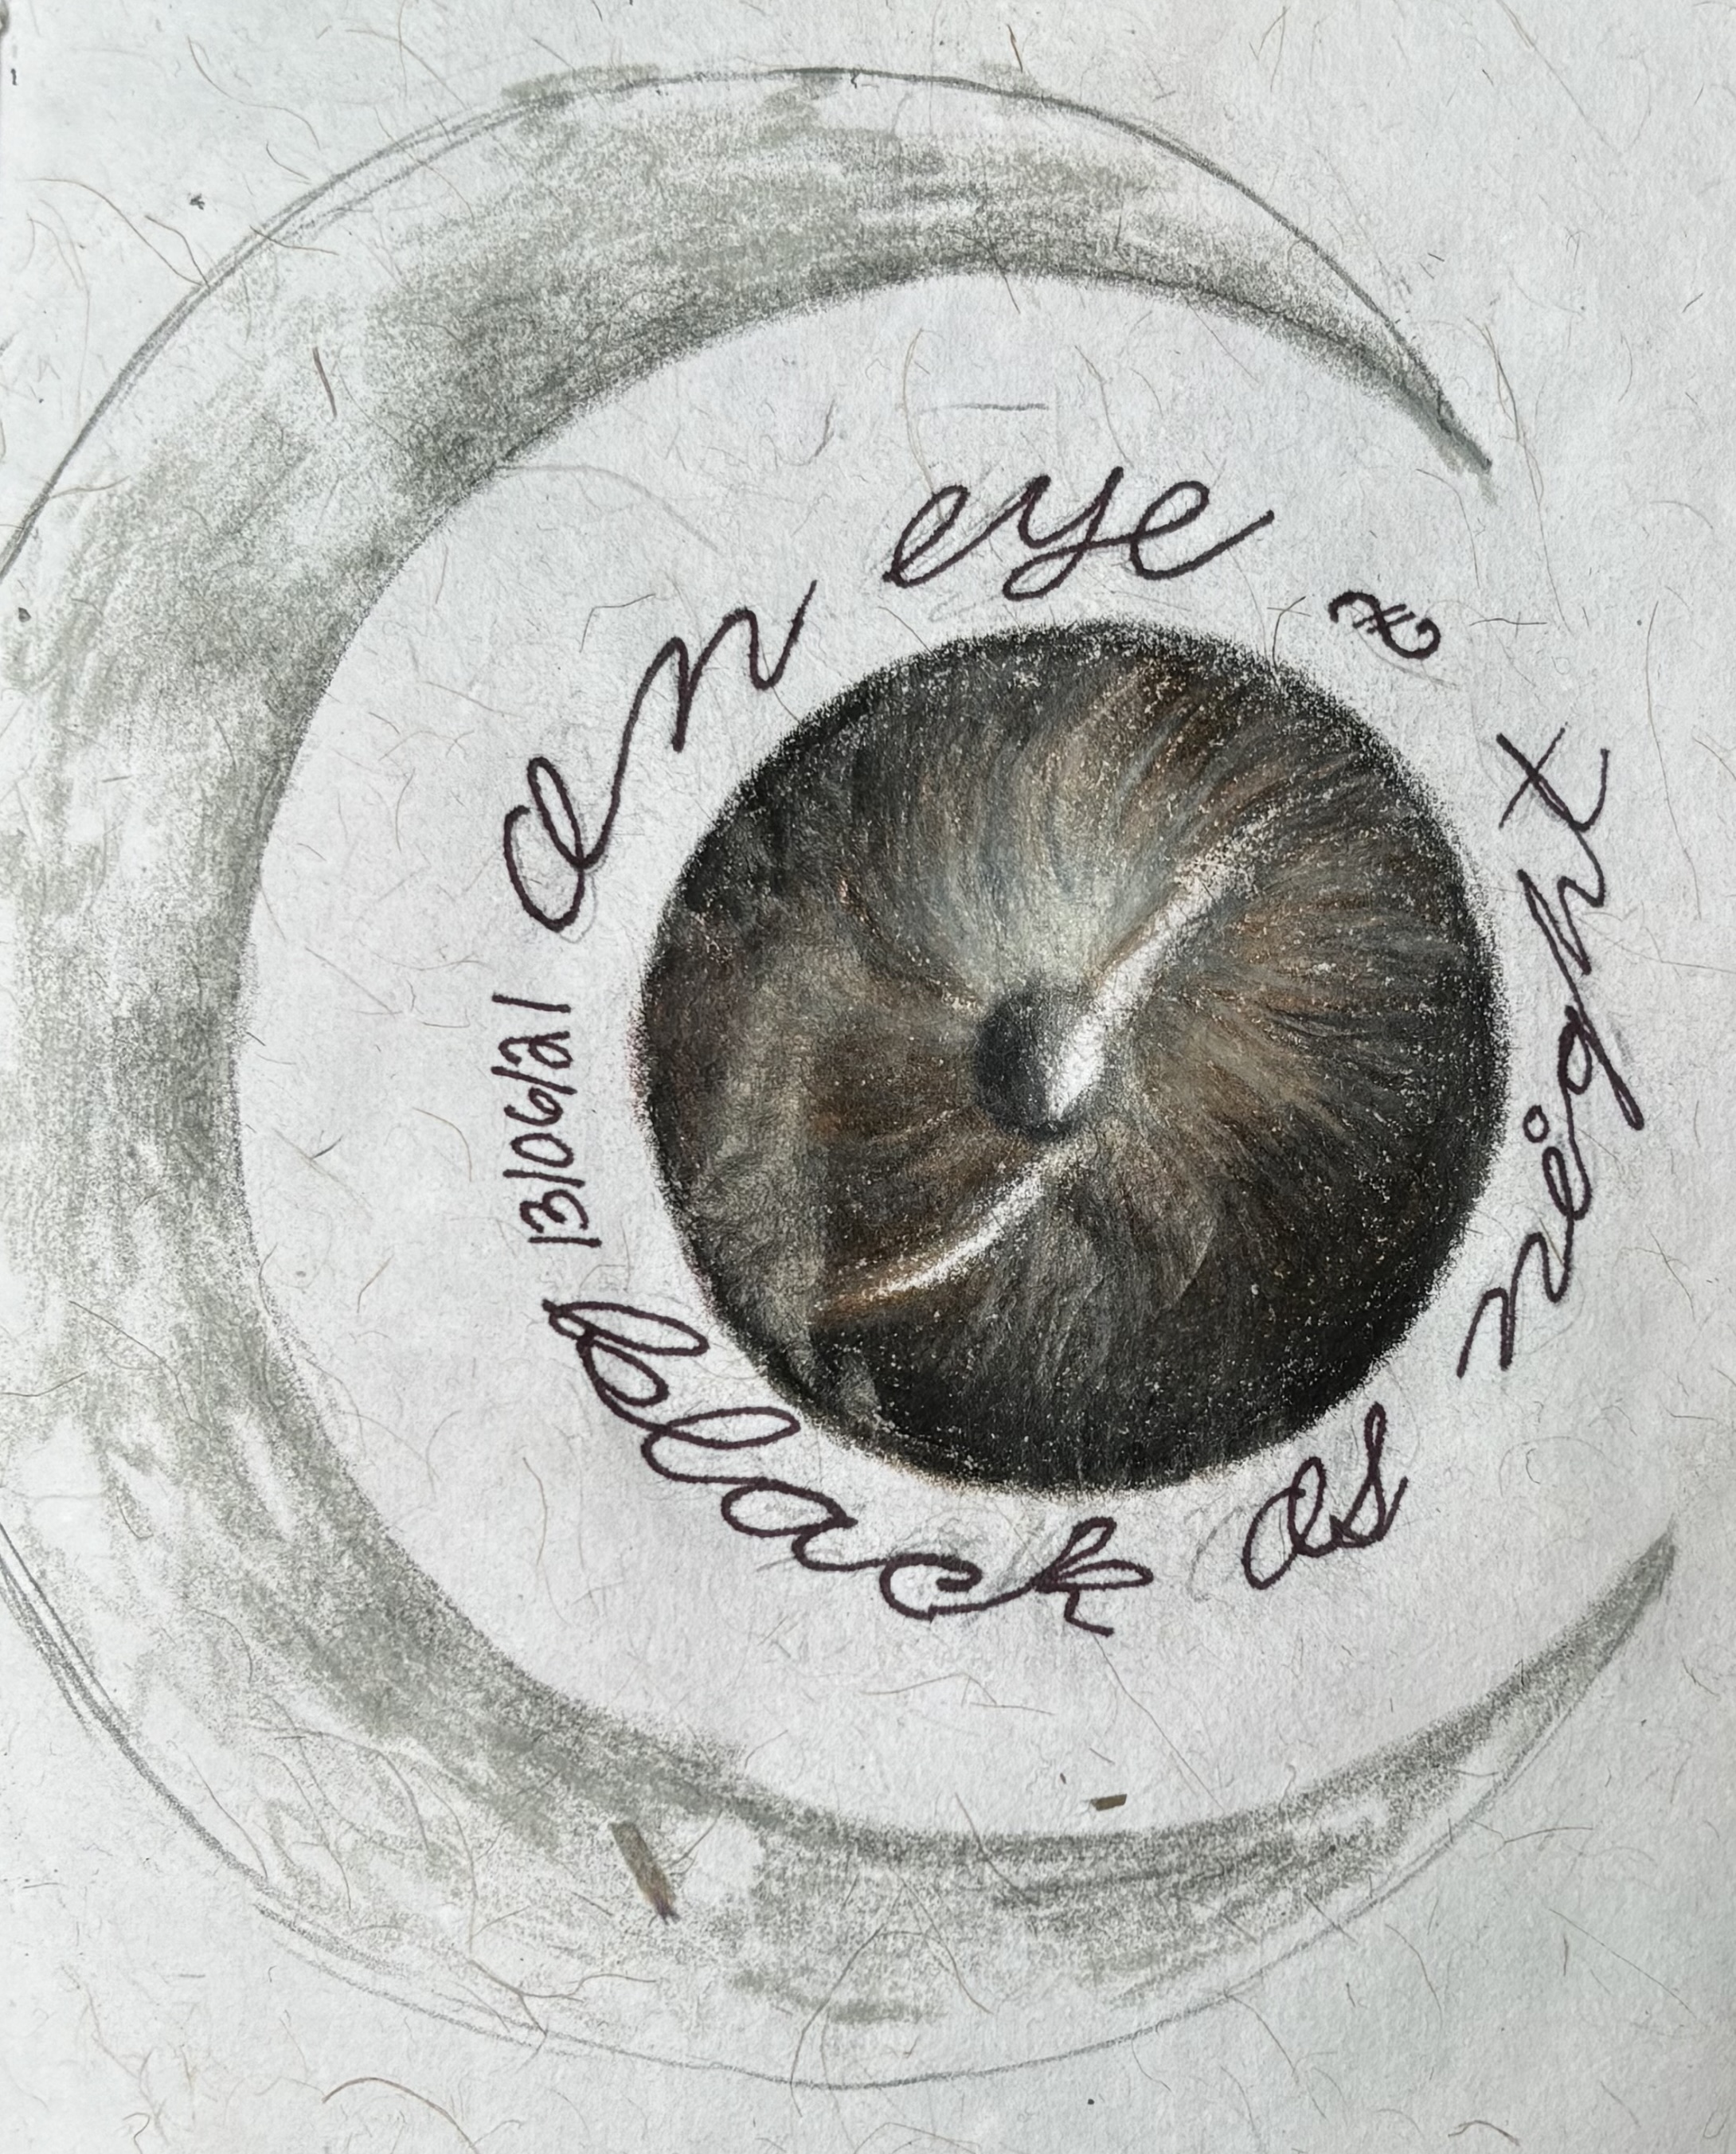 an eye
black as night
13/06/21